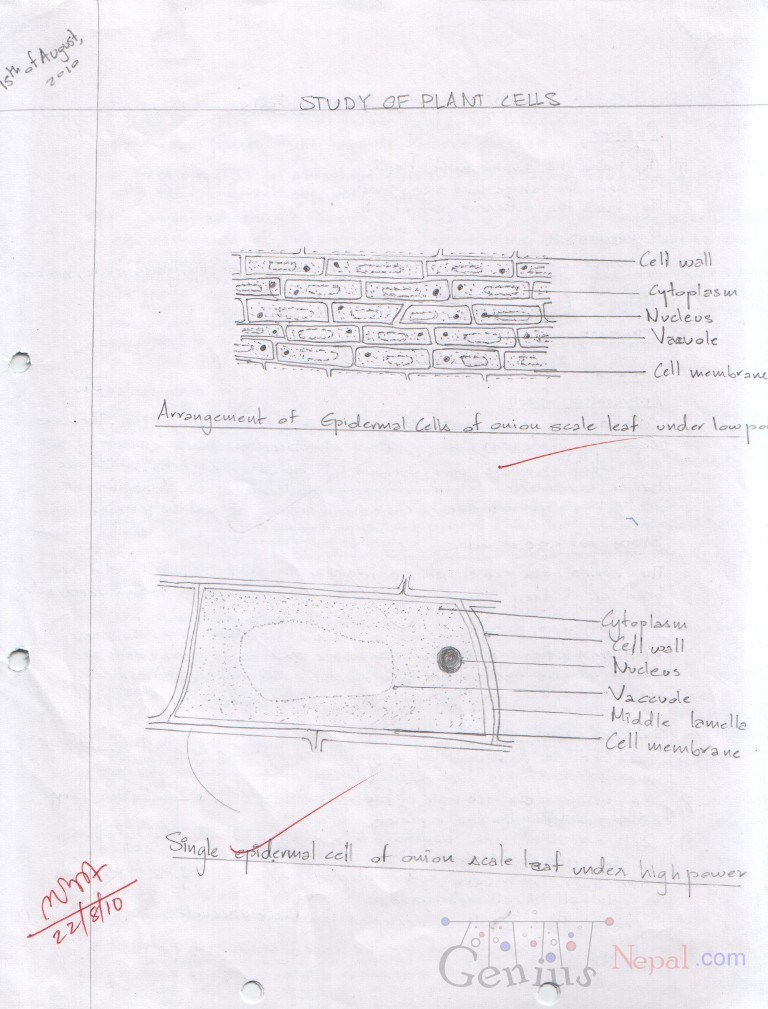 15th of August,
2010
STUDY OF PLANT CELLS
Cell wall
Cytoplasm
Nucleus
Vacuole
Cell membrane
Arrangement of Epidermal Cells of onion scale leaf under low
Cytoplasm
Cell wall
Nucleus
Vaccuole
Middle lamella
Cell membrane
Single epidermal cell of onion scale leaf under high power
22/8/10
Genius Nepal.com